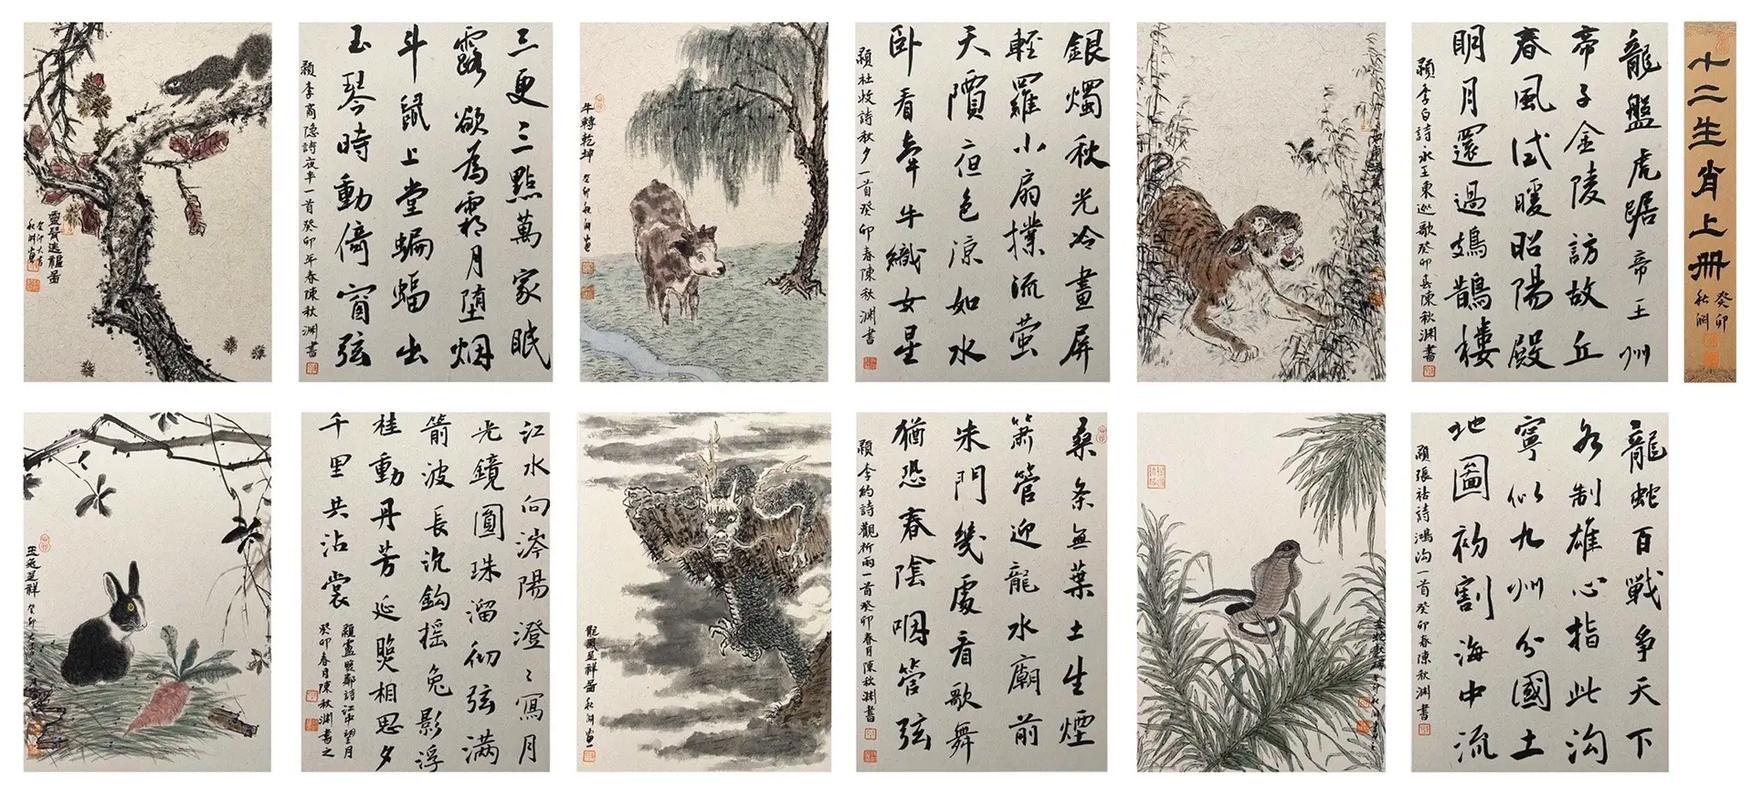 癸卯
秋淵畫
三更三點萬家眠
露欲為霜月墮烟
斗鼠上堂蝙蝠出
玉琴時動倚窗弦
李商隐詩夜半一首癸卯年春陳秋淵書
牛轉乾坤 癸卯秋淵畫
銀燭秋光冷畫屏
輕羅小扇撲流萤
天階夜色凉如水
卧看牽牛織女星
杜牧詩秋夕一首癸卯春陳秋淵書
龍盤虎踞帝王州
帝子金陵訪故丘
春風试暖昭陽殿
明月還過鳷鵲樓
李白詩永王東巡歌癸卯春陳秋淵書
十二生肖上册
癸卯
秋淵
玉兔呈祥 癸卯
江水向涔陽澄〻寫月
光鏡圓珠溜彻弦满
箭波長沉鈎摇兔影浮
桂動丹芳延照相思夕
千里共沾裳
盧照鄰詩江中望月
癸卯春月陳秋淵書之
龍鳳呈祥圖 秋淵畫
桑条無葉土生煙
簫管迎龍水廟前
朱門幾處看歌舞
猶恐春陰咽管弦
李約詩觀祈雨一首癸卯春月陳秋淵書
龍蛇百戰争天下
各制雄心指此沟
寧似九州分國土
地圖初割海中流
張祜詩鴻沟一首癸卯春陳秋淵書